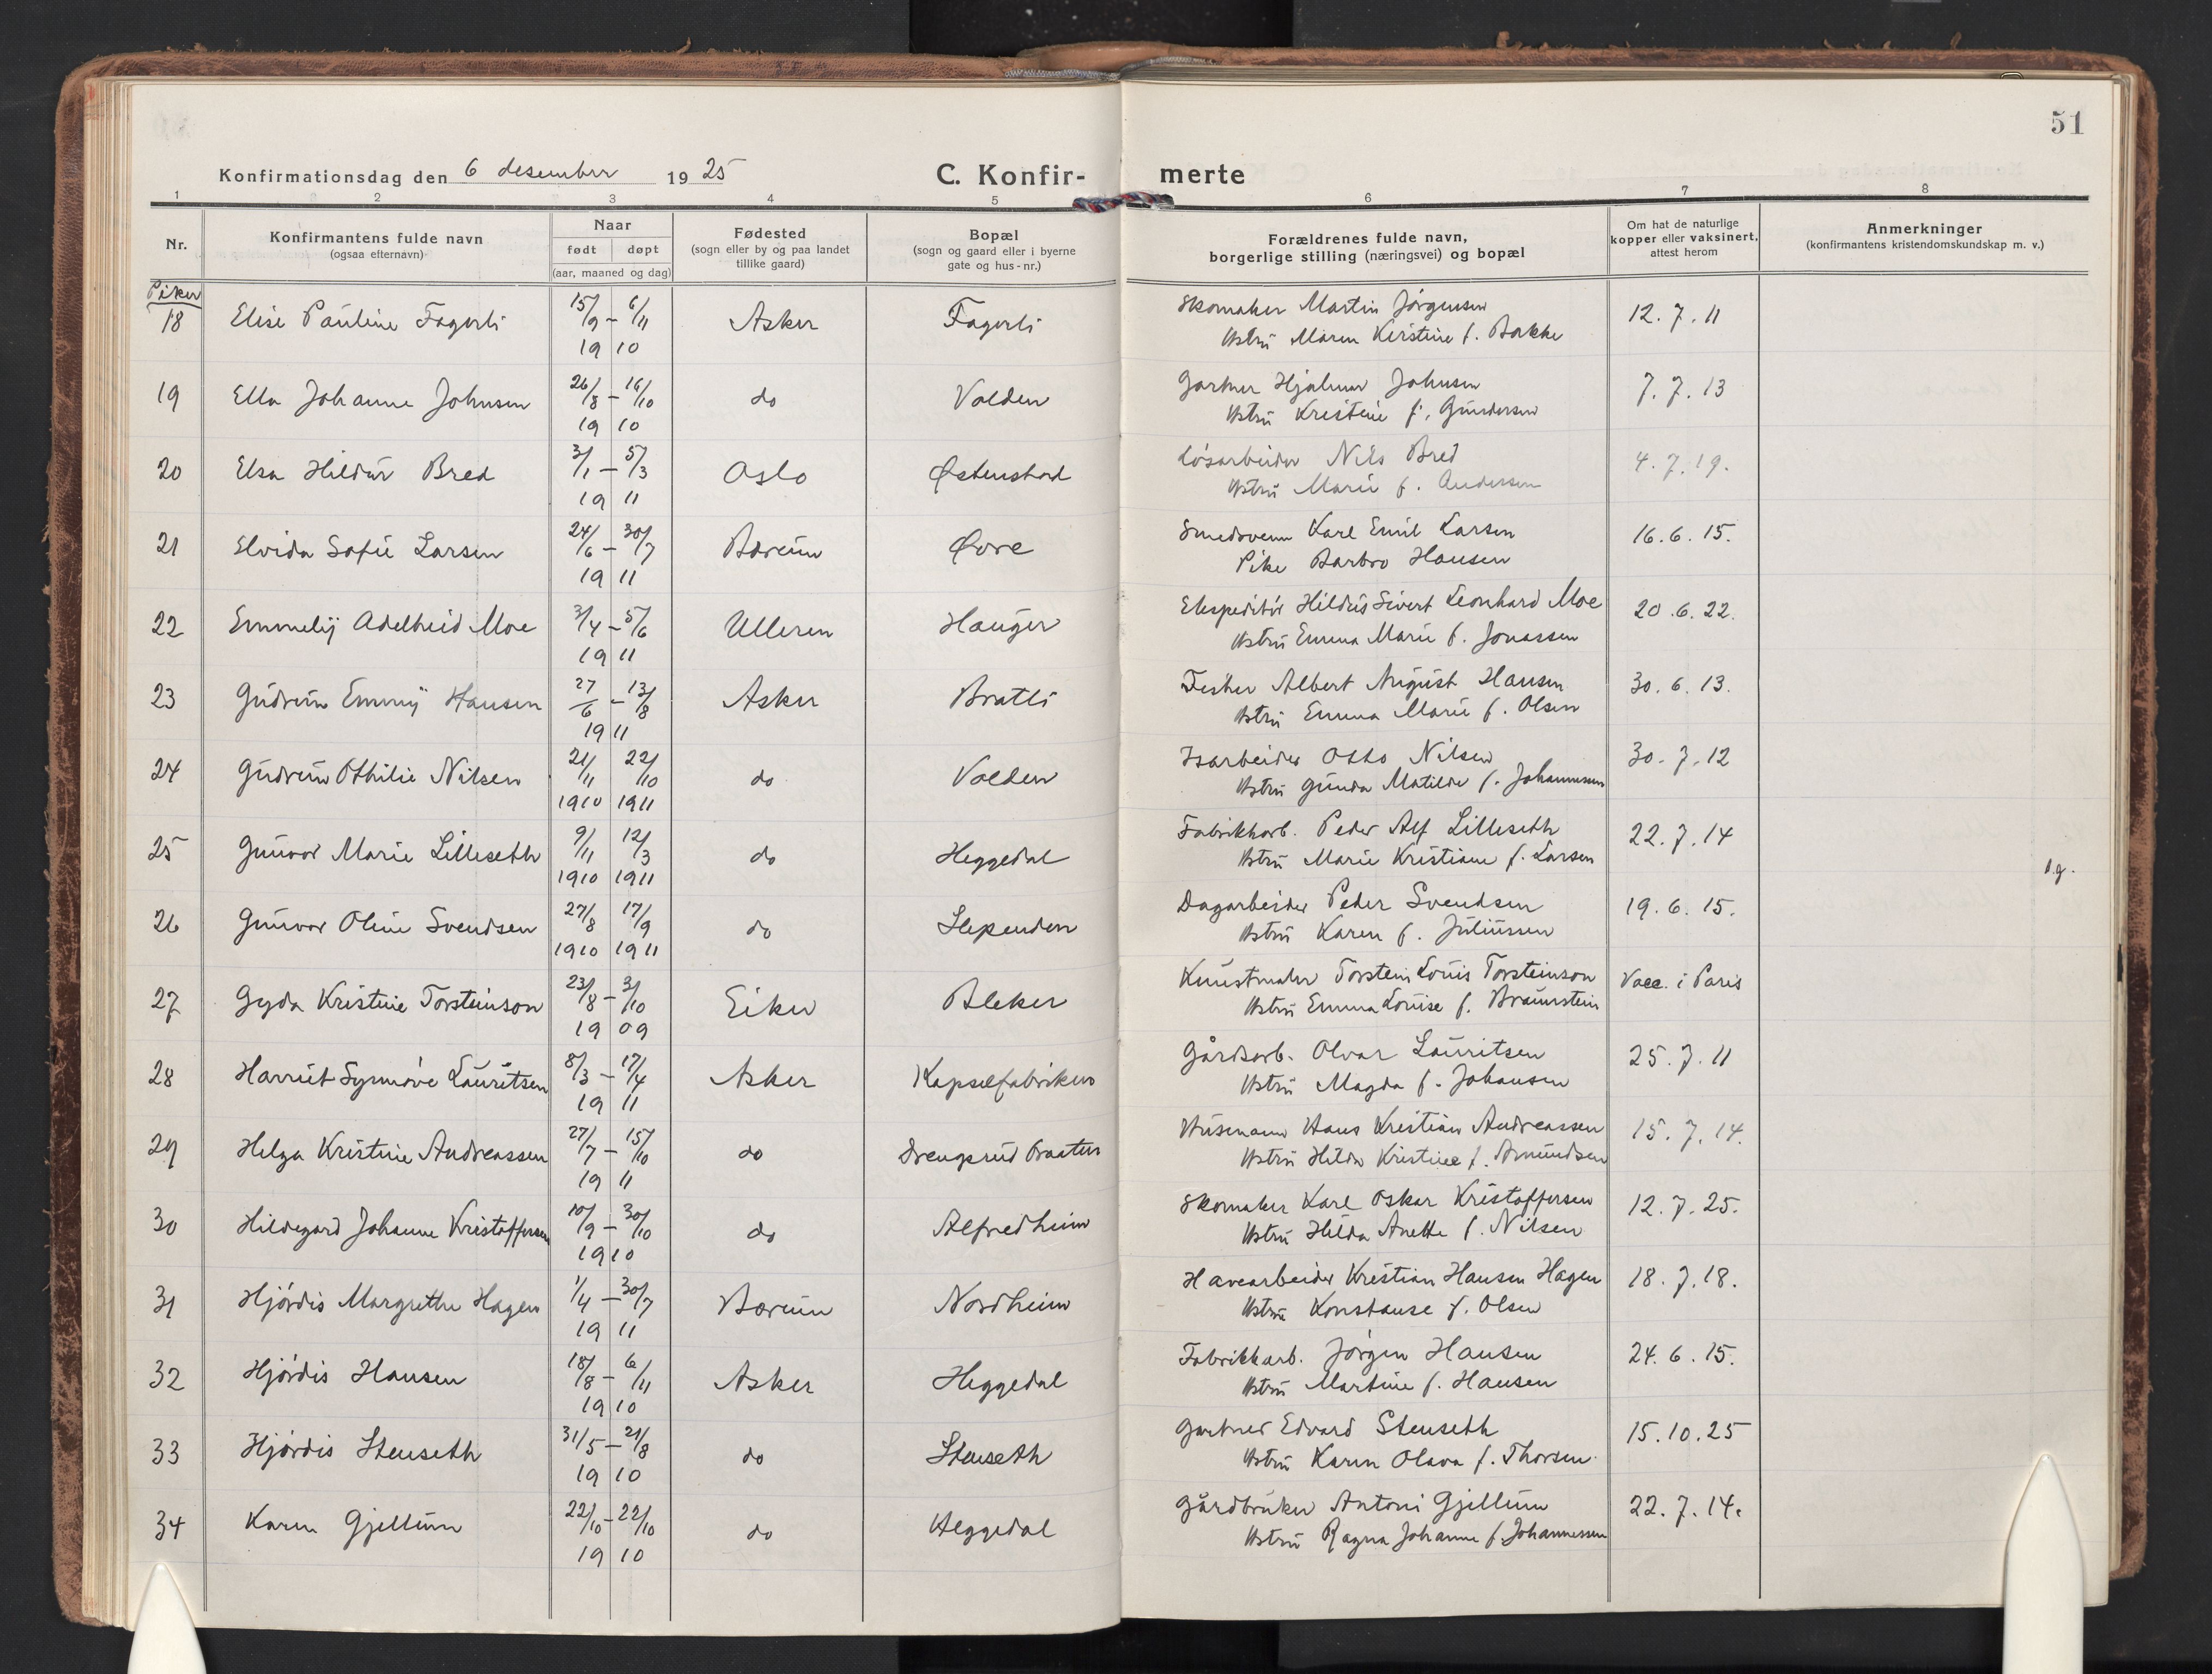 51
Konfirmationsdag den 6 desember 1925
C. Konfir- merte
1 2 3 4 5 6 7 8
Nr.
Konfirmantens fulde navn (ogsaa efternavn)
Naar født døpt (aar, maaned og dag)
Fødested (sogn eller by og paa landet tillike gaard)
Bopæl (sogn og gaard eller i byerne gate og hus-nr.)
Forældrenes fulde navn, borgerlige stilling (næringsvei) og bopæl
Om hat de naturlige kopper eller vaksinert, attest herom
Anmerkninger (konfirmantens kristendomskundskap m. v.)
Piker
18 Elise Pauline Fagerli 15/9 – 6/11 1910 Asker Fagerli Skomaker Martin Jørgensen 12.7.11
Hstru Maren Kirstine f. Bakke
19 Ella Johanne Johnsen 26/8 – 16/10 1910 do Valden Gartner Hjalmar Johnsen 7.7.13
Hstru Kristine f. Gundersen
20 Elsa Hildur Bred 3/1 – 5/3 1911 Oslo Østenstad Løsarbeider Nils Bred 4.7.19.
Hstru Marie f. Andersen
21 Elvida Sofie Larsen 24/6 – 30/7 1911 Bærum Øvre Smedsvenn Karl Emil Larsen 16.6.15.
Pike Barbro Hansen
22 Emmelij Adelheid Moe 3/4 – 5/6 1911 Ulleren Hauger Ekspeditør Hildus Sivert Leonhard Moe 20.6.22.
Hstru Emma Marie f. Jonassen
23 Gudrun Emmij Hansen 27/6 – 13/8 1911 Asker Bratli Fisker Albert August Hansen 30.6.13.
Hstru Emma Marie f. Olsen
24 Gudrun Othilie Nilsen 21/11 1910 22/10 1911 do Valden Isarbeider Otto Nilsen 30.7.12
Hstru Gunda Matilde f. Johannesen
25 Gunvor Marie Lilleseth 9/11 1910 12/3 1911 do Heggedal Fabrikkarb. Peder Alf Lilleseth 22.7.14
Hstru Marie Kristiane f. Larsen
26 Gunvor Oline Svendsen 27/8 1910 17/9 1911 do Slependen Dagarbeider Peder Svendsen 19.6.15.
Hstru Karen f. Juliussen
27 Gyda Kristine Torsteinson 23/8 – 3/10 1909 Eiker Bleker Kunstmaler Torstein Louis Torsteinson Vacc. i Paris
Hstru Emma Louise f. Braunstein
28 Harriet Synnøve Lauritsen 8/3 – 17/4 1911 Asker Kapselfabrikken Gårdsarb. Olvar Lauritsen 25.7.11
Hstru Magda f. Johansen
29 Helga Kristine Andreassen 27/7 – 15/10 1911 do Drengsrud Braaten Husmann Hans Kristian Andreassen 15.7.14.
Hstru Hilda Kristine f. Amundsen
30 Hildegard Johanne Kristoffersen 10/9 – 30/10 1910 do Alfredheim Skomaker Karl Oskar Kristoffersen 12.7.25.
Hstru Hilda Anette f. Nilsen
31 Hjørdis Margrethe Hagen 1/4 – 30/7 1911 Bærum Nordheim Havearbeider Kristian Hansen Hagen 18.7.18.
Hstru Konstanse f. Olsen
32 Hjørdis Hansen 18/8 – 6/11 1910 Asker Heggedal Fabrikkarb. Jørgen Hansen 24.6.15.
Hstru Martine f. Hansen
33 Hjørdis Stenseth 31/5 – 21/8 1910 do Stenseth Gartner Edvard Stenseth 15.10.25
Hstru Karen Olava f. Thorsen
34 Karen Gjellum 22/10 – 22/10 1910 do Heggedal Gårdbruker Antoni Gjellum 22.7.14.
Hstru Ragna Johanne f. Johannessen